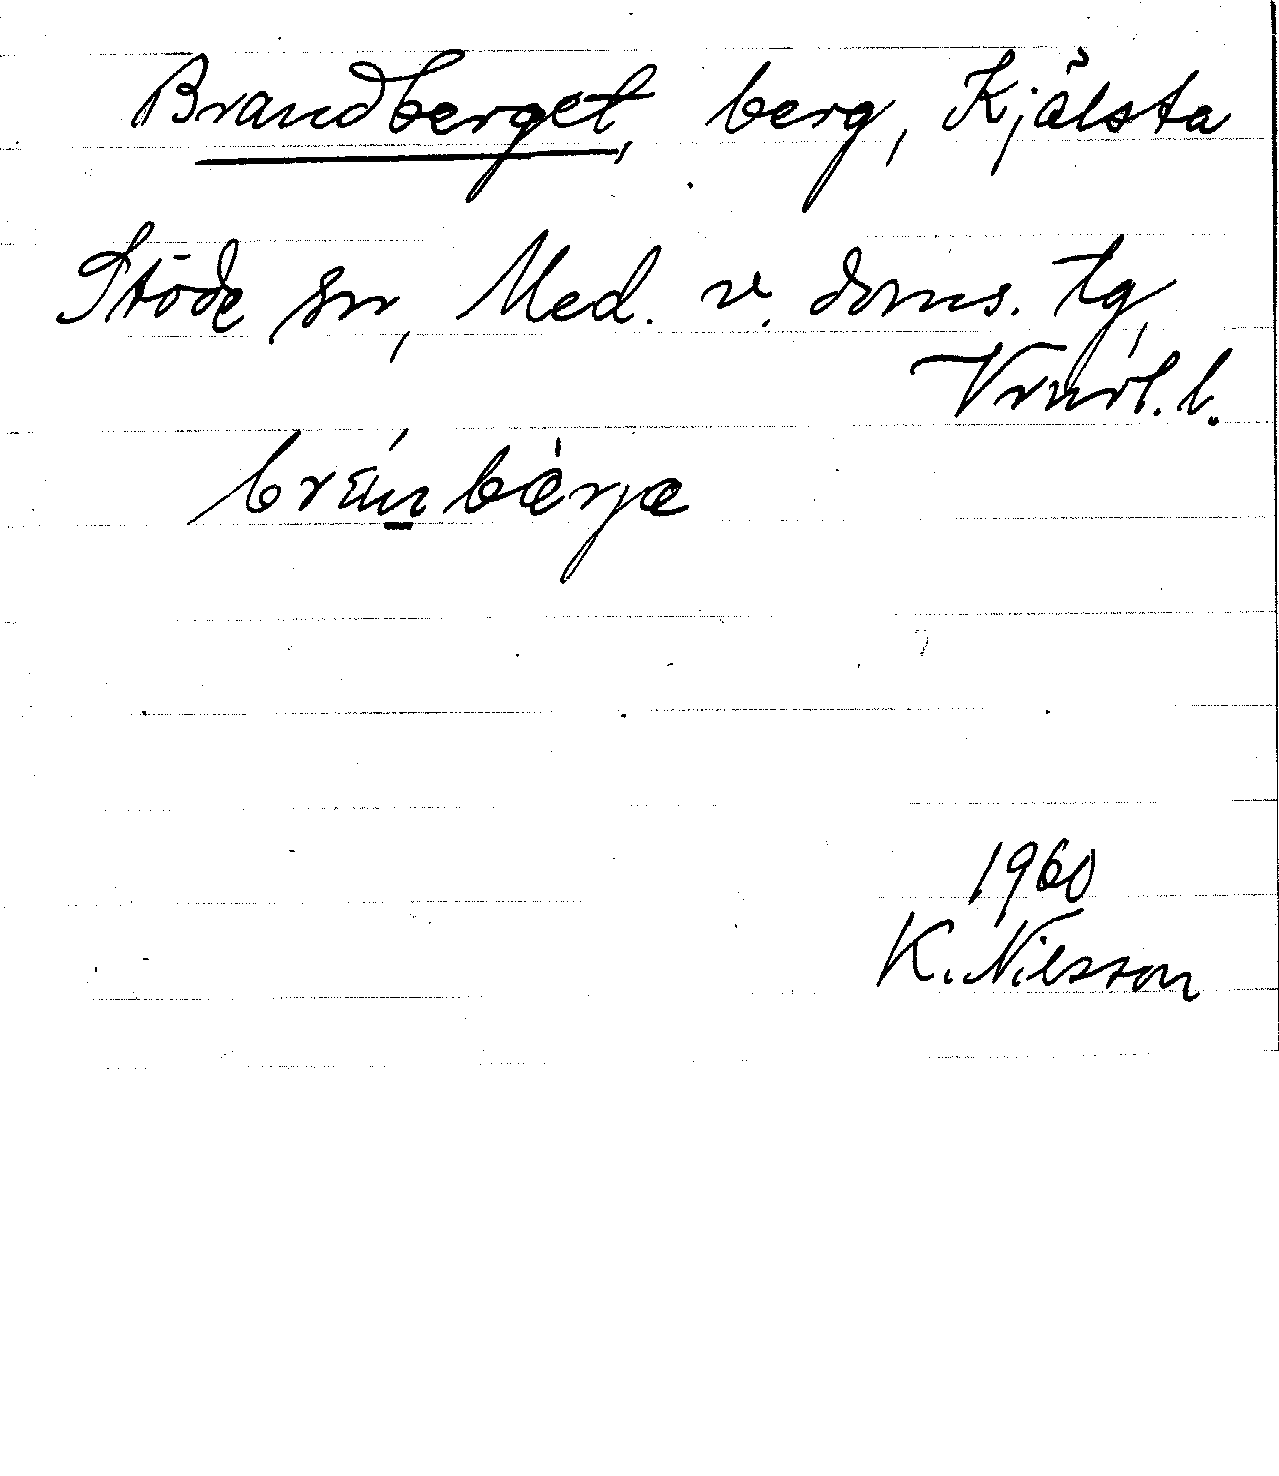 Brandberget, berg, Kjälsta
Stöde sn, Med. v. doms. tg,
Vrnrl. l.
brénbærjæ
1960
K. Nilsson